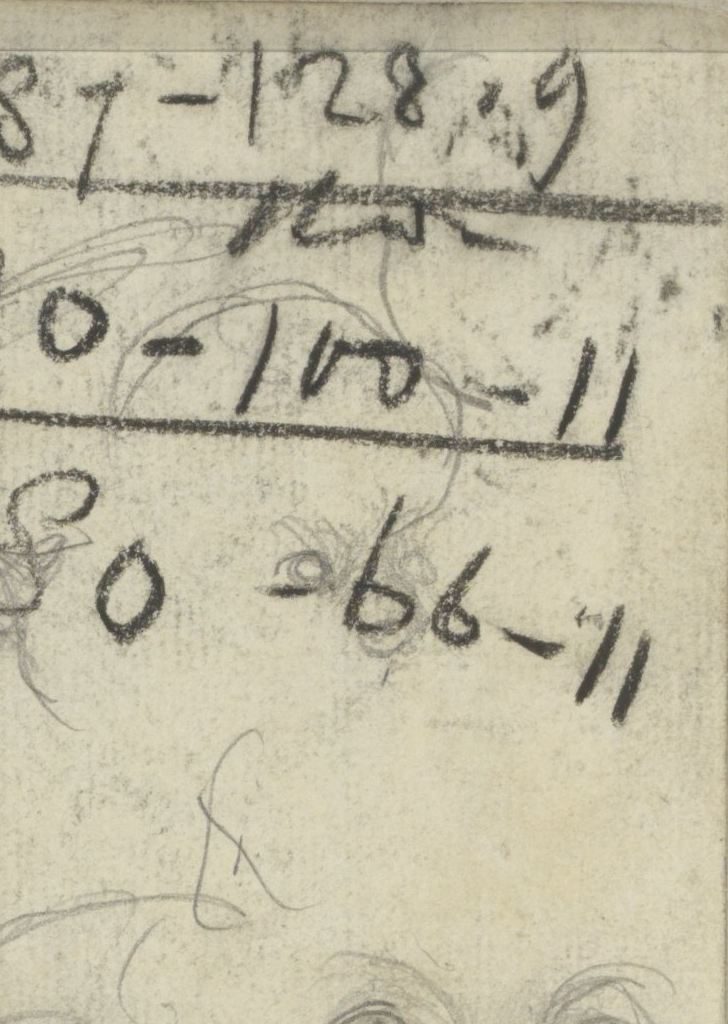 87-128.9
0-100-11
80 -66-11